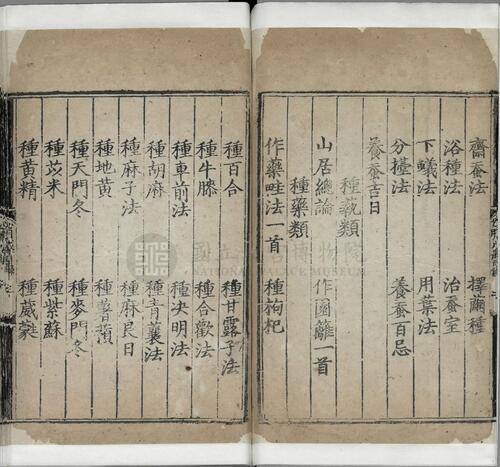 齋蚕法 擇繭種
浴種法 治蚕室
下蟻法 用葉法
分擡法 養蚕百忌
養蚕吉日
種蓺類
山居總論 作園籬一首
種藥類
作藥畦法一首 種枸杞
種百合 種甘露子法
種牛膝 種合歡法
種車前法 種決明法
種胡麻 種青蘘法
種麻子法 種麻良日
種地黄
種天門冬 種麥門冬
種苡米 種紫蘇
種黄精 種葳蕤
國立故宮博物院
NATIONAL PALACE MUSEUM